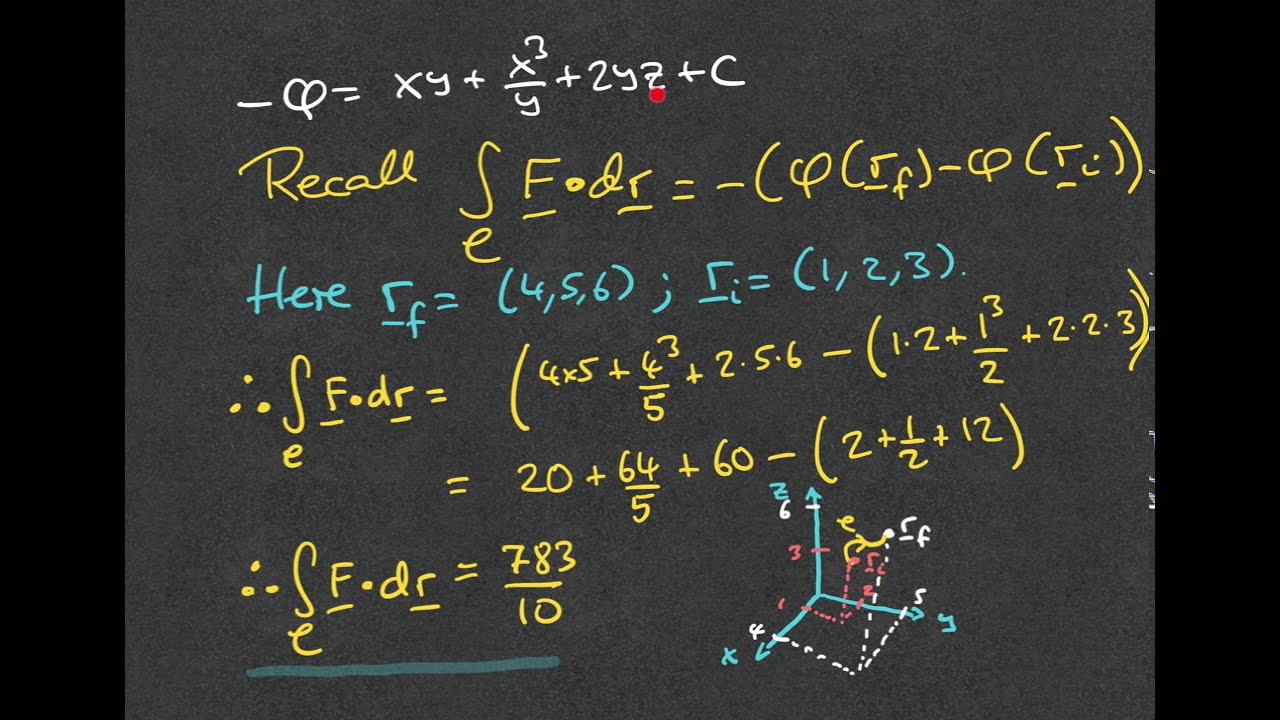 -φ = xy + x³/y + 2yz + C
Recall ∫_C F·dr = -(φ(r_f) - φ(r_i))
Here r_f = (4,5,6) ; r_i = (1,2,3).
∴ ∫_C F·dr = (4×5 + 4³/5 + 2·5·6 - (1·2 + 1³/2 + 2·2·3)
= 20 + 64/5 + 60 - (2 + 1/2 + 12)
∴ ∫_C F·dr = 783/10
z
6
C
r_f
3
r_i
1
2
5
y
4
x